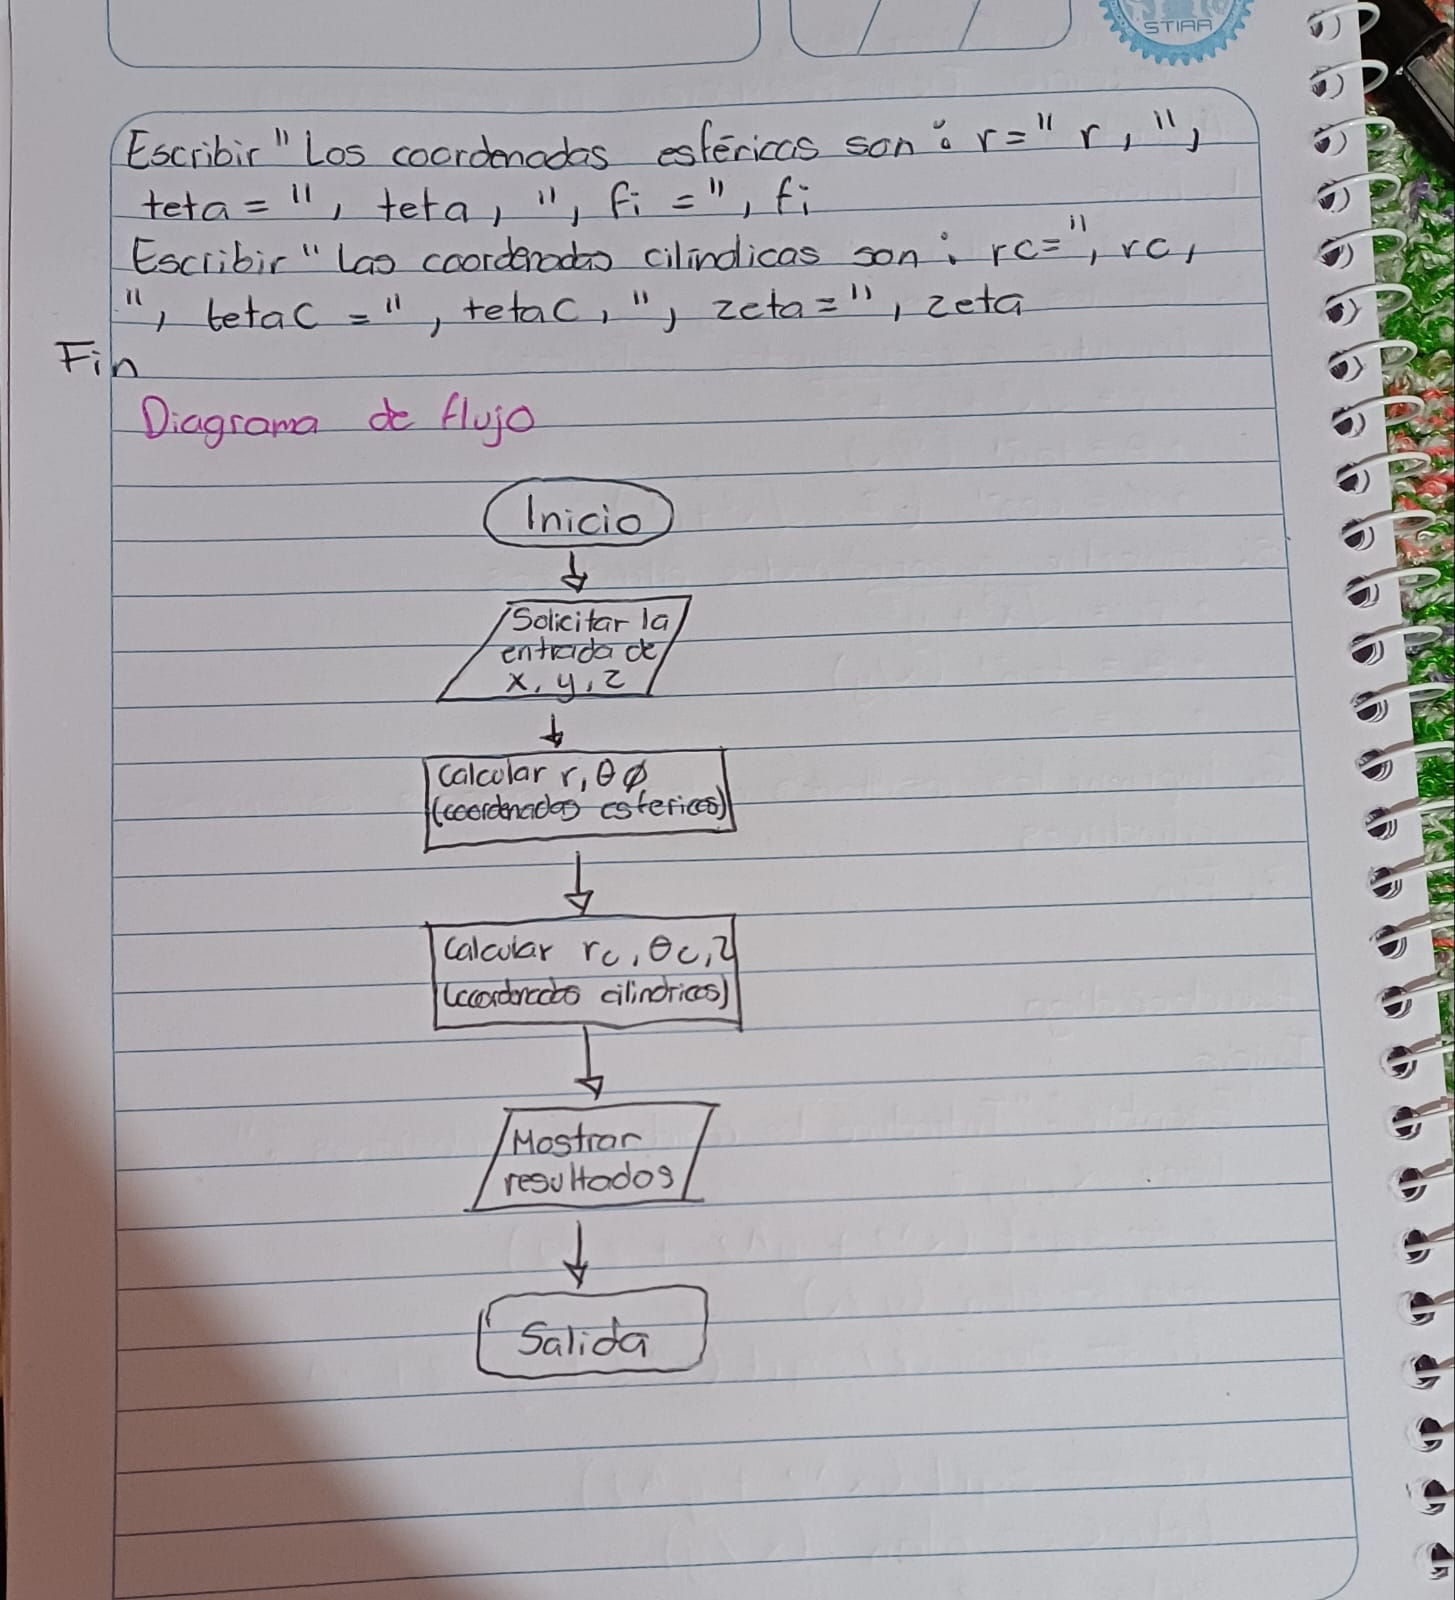 STIAR
Escribir " Los coordenadas esféricas son : r=" r, ",
teta = ", teta, ", fi =", fi
Escribir " Las coordenadas cilíndicas son : rc=", rc,
", tetac = ", tetac, ", zeta=", zeta
Fin
Diagrama de flujo
Inicio
Solicitar la
entrada de
x, y, z
Calcular r, θ ø
(coordenadas esfericas)
Calcular rc, θc, z
(coordenadas cilindricas)
Mostrar
resultados
Salida